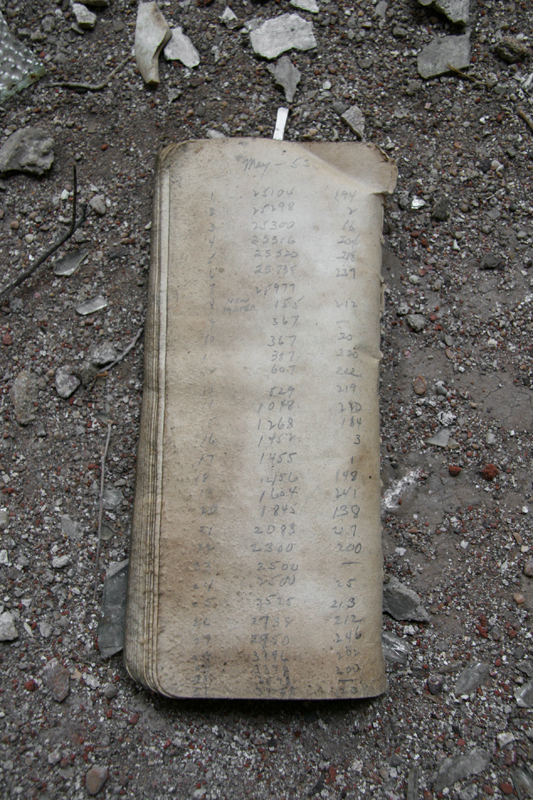 May -
1 25104 194
2 25298 2
3 25300 16
4 25316 204
25520 218
6 25738 239
25977
NEW METER 155 212
367 —
10 367 20
387 220
607 222
829 219
1048 220
1268 184
16 1452 3
17 1455 1
18 1456 148
1604 241
20 1845
21 2093 207
22 2300 200
23 2500 —
24 2500 25
25 2525 213
26 2738 212
27 2950 246
3196